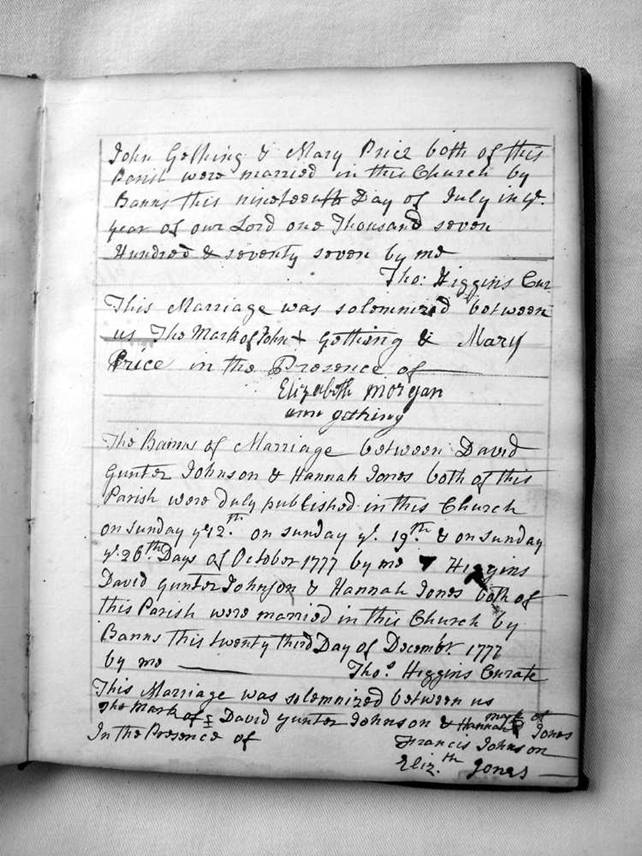 John Gething & Mary Price both of this
Parish were married in this Church by
Banns this nineteenth Day of July in ye.
year of our Lord one Thousand seven
Hundred & seventy seven by me
Tho: Higgins Cur
This Marriage was solemnized between
us The Mark of John + Gething & Mary
Price in the Presence of
Elizabeth Morgan
ann gething
The Banns of Marriage between David
Gunter Johnson & Hannah Jones both of this
Parish were duly published in this Church
on Sunday ye 12.th on Sunday ye. 19.th & on Sunday
ye. 26.th Days of October 1777 by me Higgins
David Gunter Johnson & Hannah Jones both of
this Parish were married in this Church by
Banns this twenty third Day of Decembr. 1777
by me Thos. Higgins Curate
This Marriage was solemnized between us
The Mark of David Gunter Johnson & Hannah mark of Jones
In the Presence of Francis Johnson
Eliz.th Jones